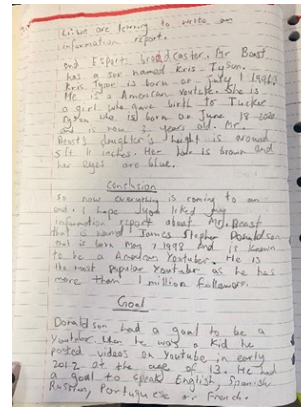 L.i: we are lerning to write an
information report.
and Esports broadcaster. Mr Beast
has a son named Kris Tyson.
Kris Tyson is born on july 1 1996.
He is a American youtube. She is
a girl who gave birth to Tucker
Tyson who is born on June 18 2020
and is now 3 years old. Mr
Beast's daughter's height is around
5 ft 11 inches. Her hair is brown and
her eyes are blue.
Conclusion
So now everything is coming to an
end. I hope you liked my
information report about Mr. Beast
that is named James Stepher Donaldson
that is born May 7 1998 and is known
to be a American Youtuber. He is
the most popular Youtuber as he has
more than 1 million followers.
Goal
Donaldson had a goal to be a
Youtuber when he was a kid he
posted videos on Youtube in early
2012 at the age of 13. He had
a goal to speak English, Spanish
Russian, Portuguese or French.